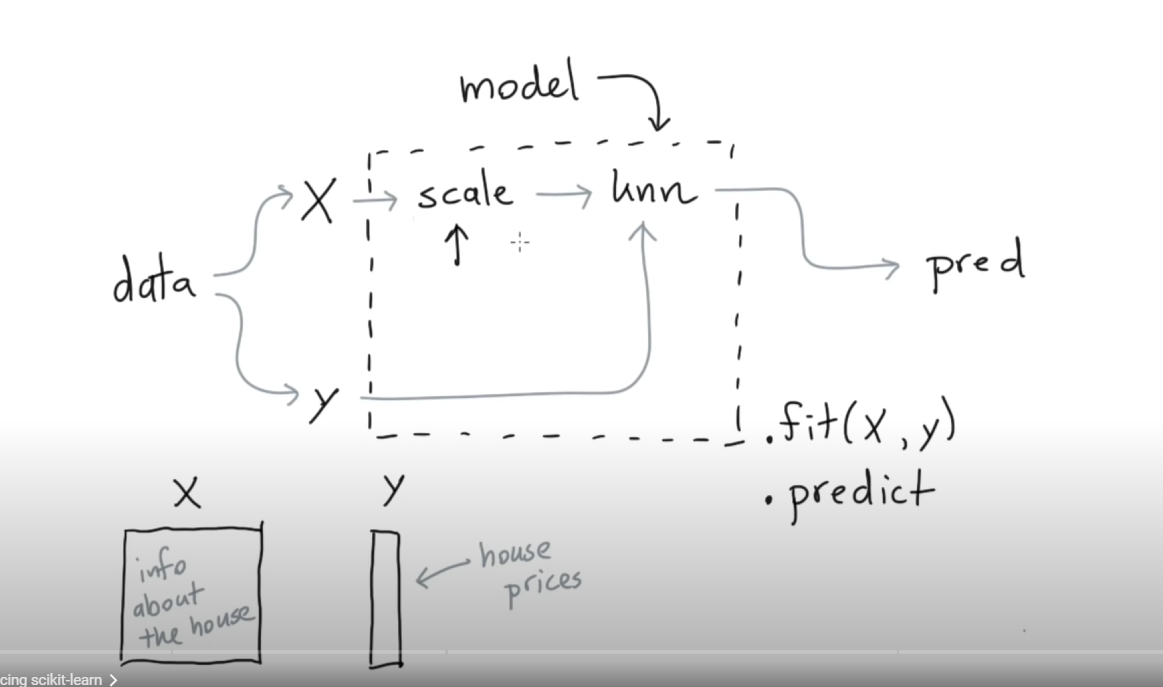 model
X
scale
knn
data
pred
y
.fit(X,y)
.predict
X
y
info
about
the house
house
prices
cing scikit-learn